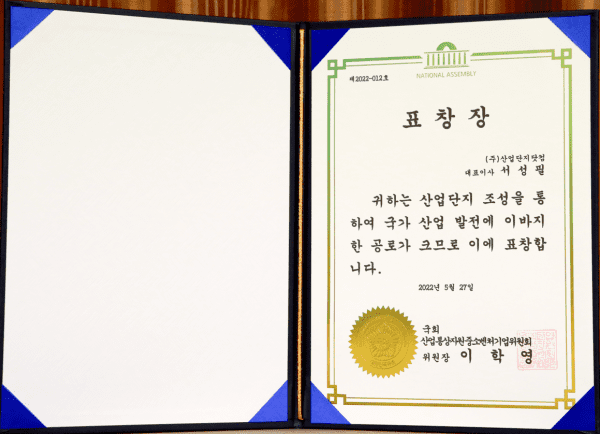 NATIONAL ASSEMBLY
제2022-012호
표 창 장
(주)산업단지닷컴
대표이사 서 성 필
귀하는 산업단지 조성을 통
하여 국가 산업 발전에 이바지
한 공로가 크므로 이에 표창합
니다.
2022년 5월 27일
국회
산업통상자원중소벤처기업위원회
위원장 이 학 영